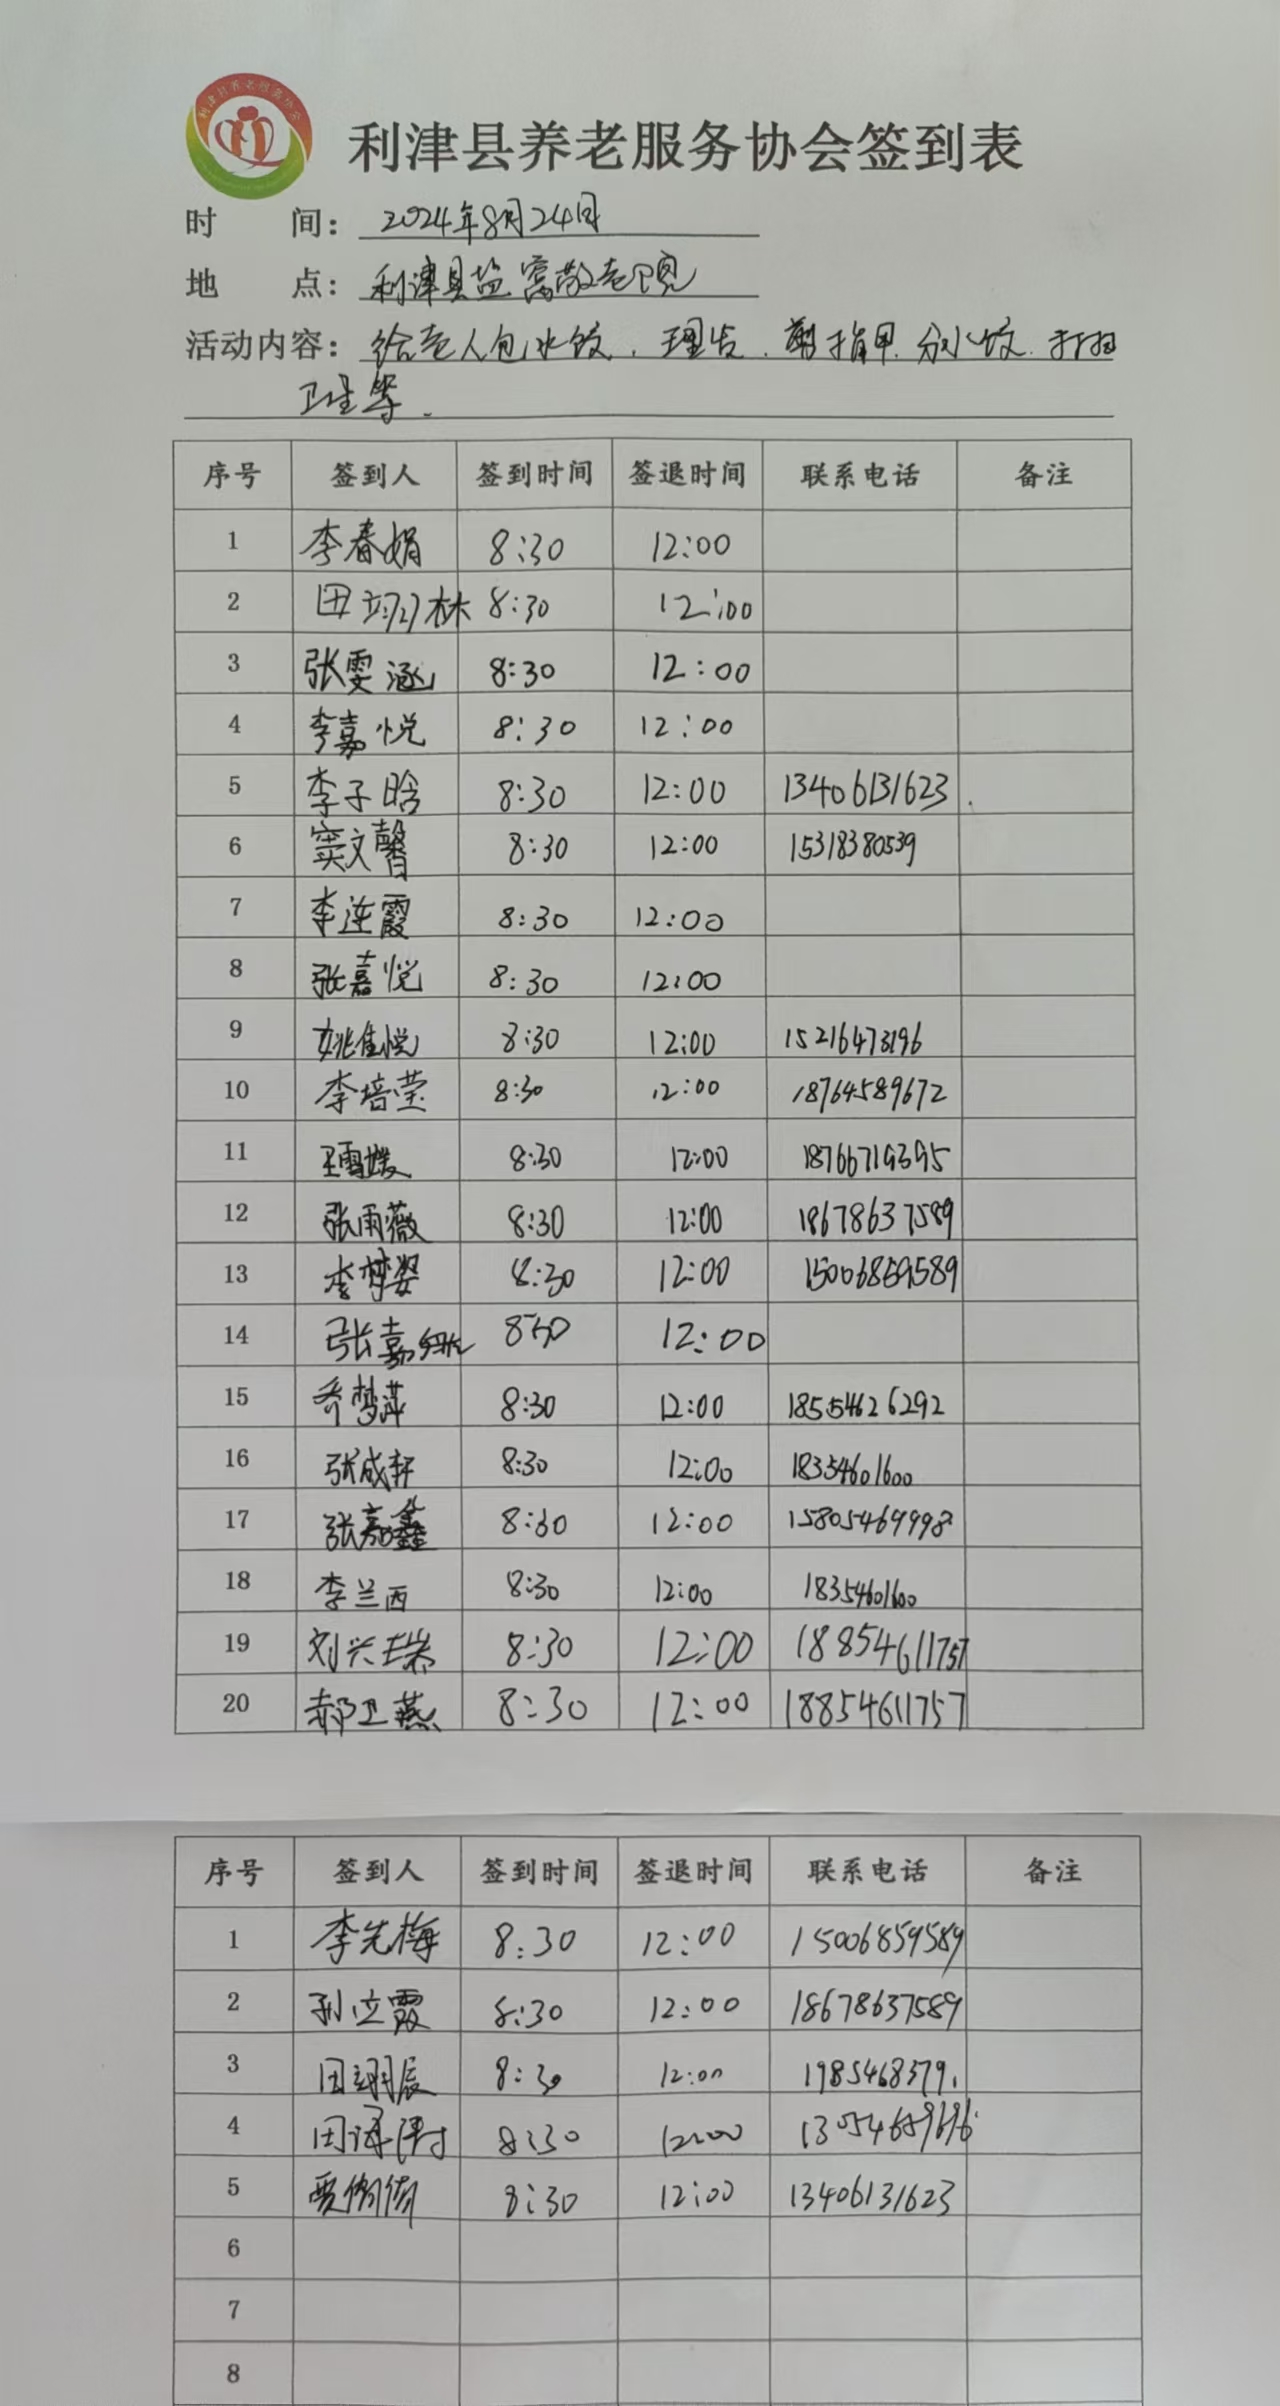 利津县养老服务协会
利津县养老服务协会签到表
时 间: 2024年8月24日
地 点: 利津县盐窝敬老院
活动内容: 给老人包水饺、理发、剪指甲、分水饺、打扫
卫生等.
序号 签到人 签到时间 签退时间 联系电话 备注
1 李春娟 8:30 12:00
2 田翊林 8:30 12:00
3 张雯涵 8:30 12:00
4 李嘉悦 8:30 12:00
5 李子晗 8:30 12:00 13406131623
6 窦文馨 8:30 12:00 15318380539
7 李连霞 8:30 12:00
8 张嘉悦 8:30 12:00
9 姚佳悦 8:30 12:00 15216473196
10 李培莹 8:30 12:00 18764589672
11 8:30 12:00 18766719395
12 张雨薇 8:30 12:00 18678637589
13 李梦姿 8:30 12:00 15006859589
14 张嘉 12:00
15 乔梦萍 8:30 12:00 18554626292
16 张成轩 8:30 12:00 18354601600
17 张嘉鑫 8:30 12:00 15805469998
18 李兰西 8:30 12:00 18354601600
19 刘兴瑞 8:30 12:00 18854611757
20 郝卫燕 8:30 12:00 18854611757
序号 签到人 签到时间 签退时间 联系电话 备注
1 李先梅 8:30 12:00 15006859589
2 孙立霞 8:30 12:00 18678637589
3 田翊辰 8:30 12:00 1985468379
4 田 8:30 12:00 13054689696
5 贾倩倩 8:30 12:00 13406131623
6
7
8